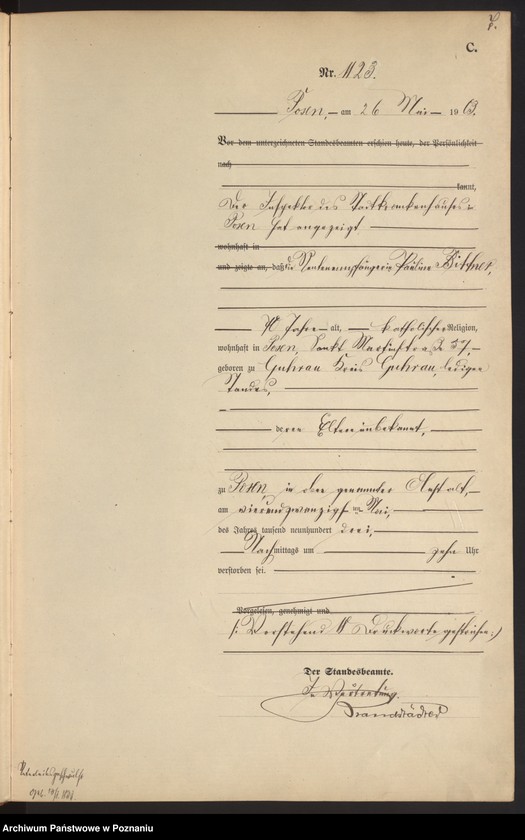 C.
Nr. 1123.
Posen, am 26 Mai 1903.
Vor dem unterzeichneten Standesbeamten erschien heute, der Persönlichkeit
nach
kannt,
Der Inspektor des Stadtkrankenhauses
Posen hat angezeigt
wohnhaft in
und zeigte an, daß die Rentenempfängerin Pauline Bittner,
Jahre alt, katholischer Religion,
wohnhaft in Posen, Sankt Martinstraße 37,
geboren zu Guhrau Kreis Guhrau, ledigen
Standes,
deren Eltern unbekannt,
zu Posen, in der genannten Anstalt,
am vierundzwanzigsten Mai,
des Jahres tausend neunhundert drei,
Nachmittags um zehn Uhr
verstorben sei.
Vorgelesen, genehmigt und
Vorstehend Druckworte gestrichen.
Der Standesbeamte.
In Vertretung.
Brandstädter
Archiwum Państwowe w Poznaniu